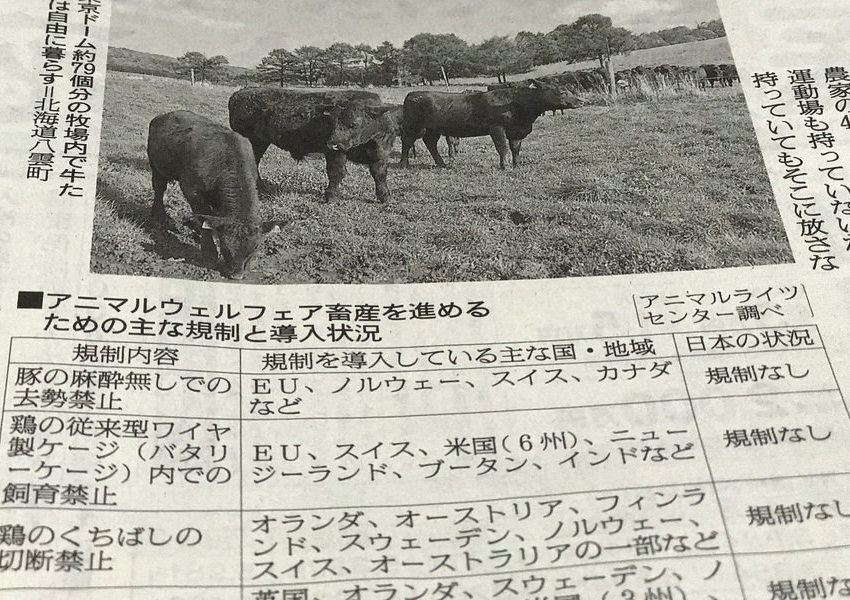 農家の4
運動場も持っていないた
持っていてもそこに放さな
京ドーム約79個分の牧場内で牛た
は自由に暮らす=北海道八雲町
■アニマルウェルフェア畜産を進める
ための主な規制と導入状況
アニマルライツ
センター調べ
規制内容
規制を導入している主な国・地域
日本の状況
豚の麻酔無しでの
去勢禁止
EU、ノルウェー、スイス、カナダ
など
規制なし
鶏の従来型ワイヤ
製ケージ(バタリ
ーケージ)内での
飼育禁止
EU、スイス、米国(6州)、ニュー
ジーランド、ブータン、インドなど
規制なし
鶏のくちばしの
切断禁止
オランダ、オーストリア、フィンラ
ンド、スウェーデン、ノルウェー、
スイス、オーストラリアの一部など
規制なし
英国、オランダ、スウェーデン、ノ
米国(3州)、
規制な